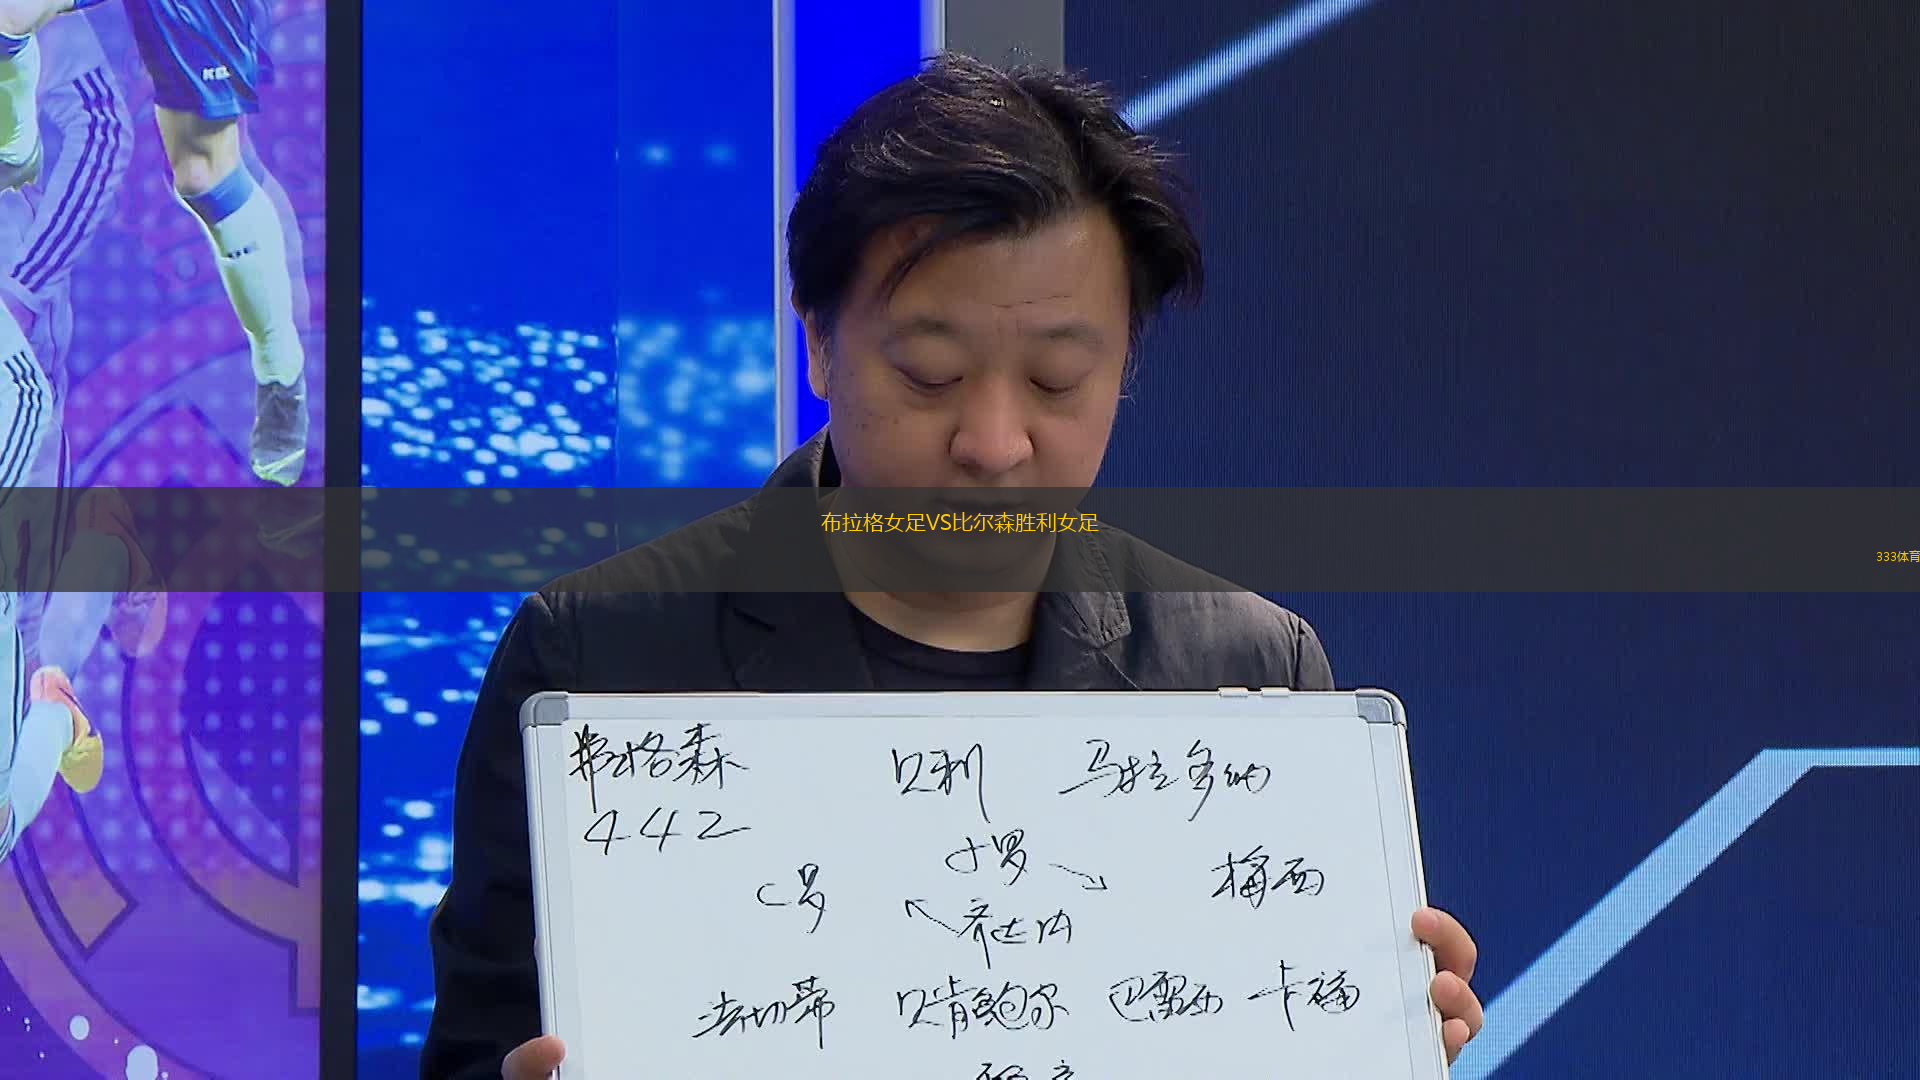 布拉格女足VS比尔森胜利女足
333体育
弗格森 贝利 马拉多纳
442
小罗
C罗 梅西
齐达内
法切蒂 贝肯鲍尔 巴雷西 卡福